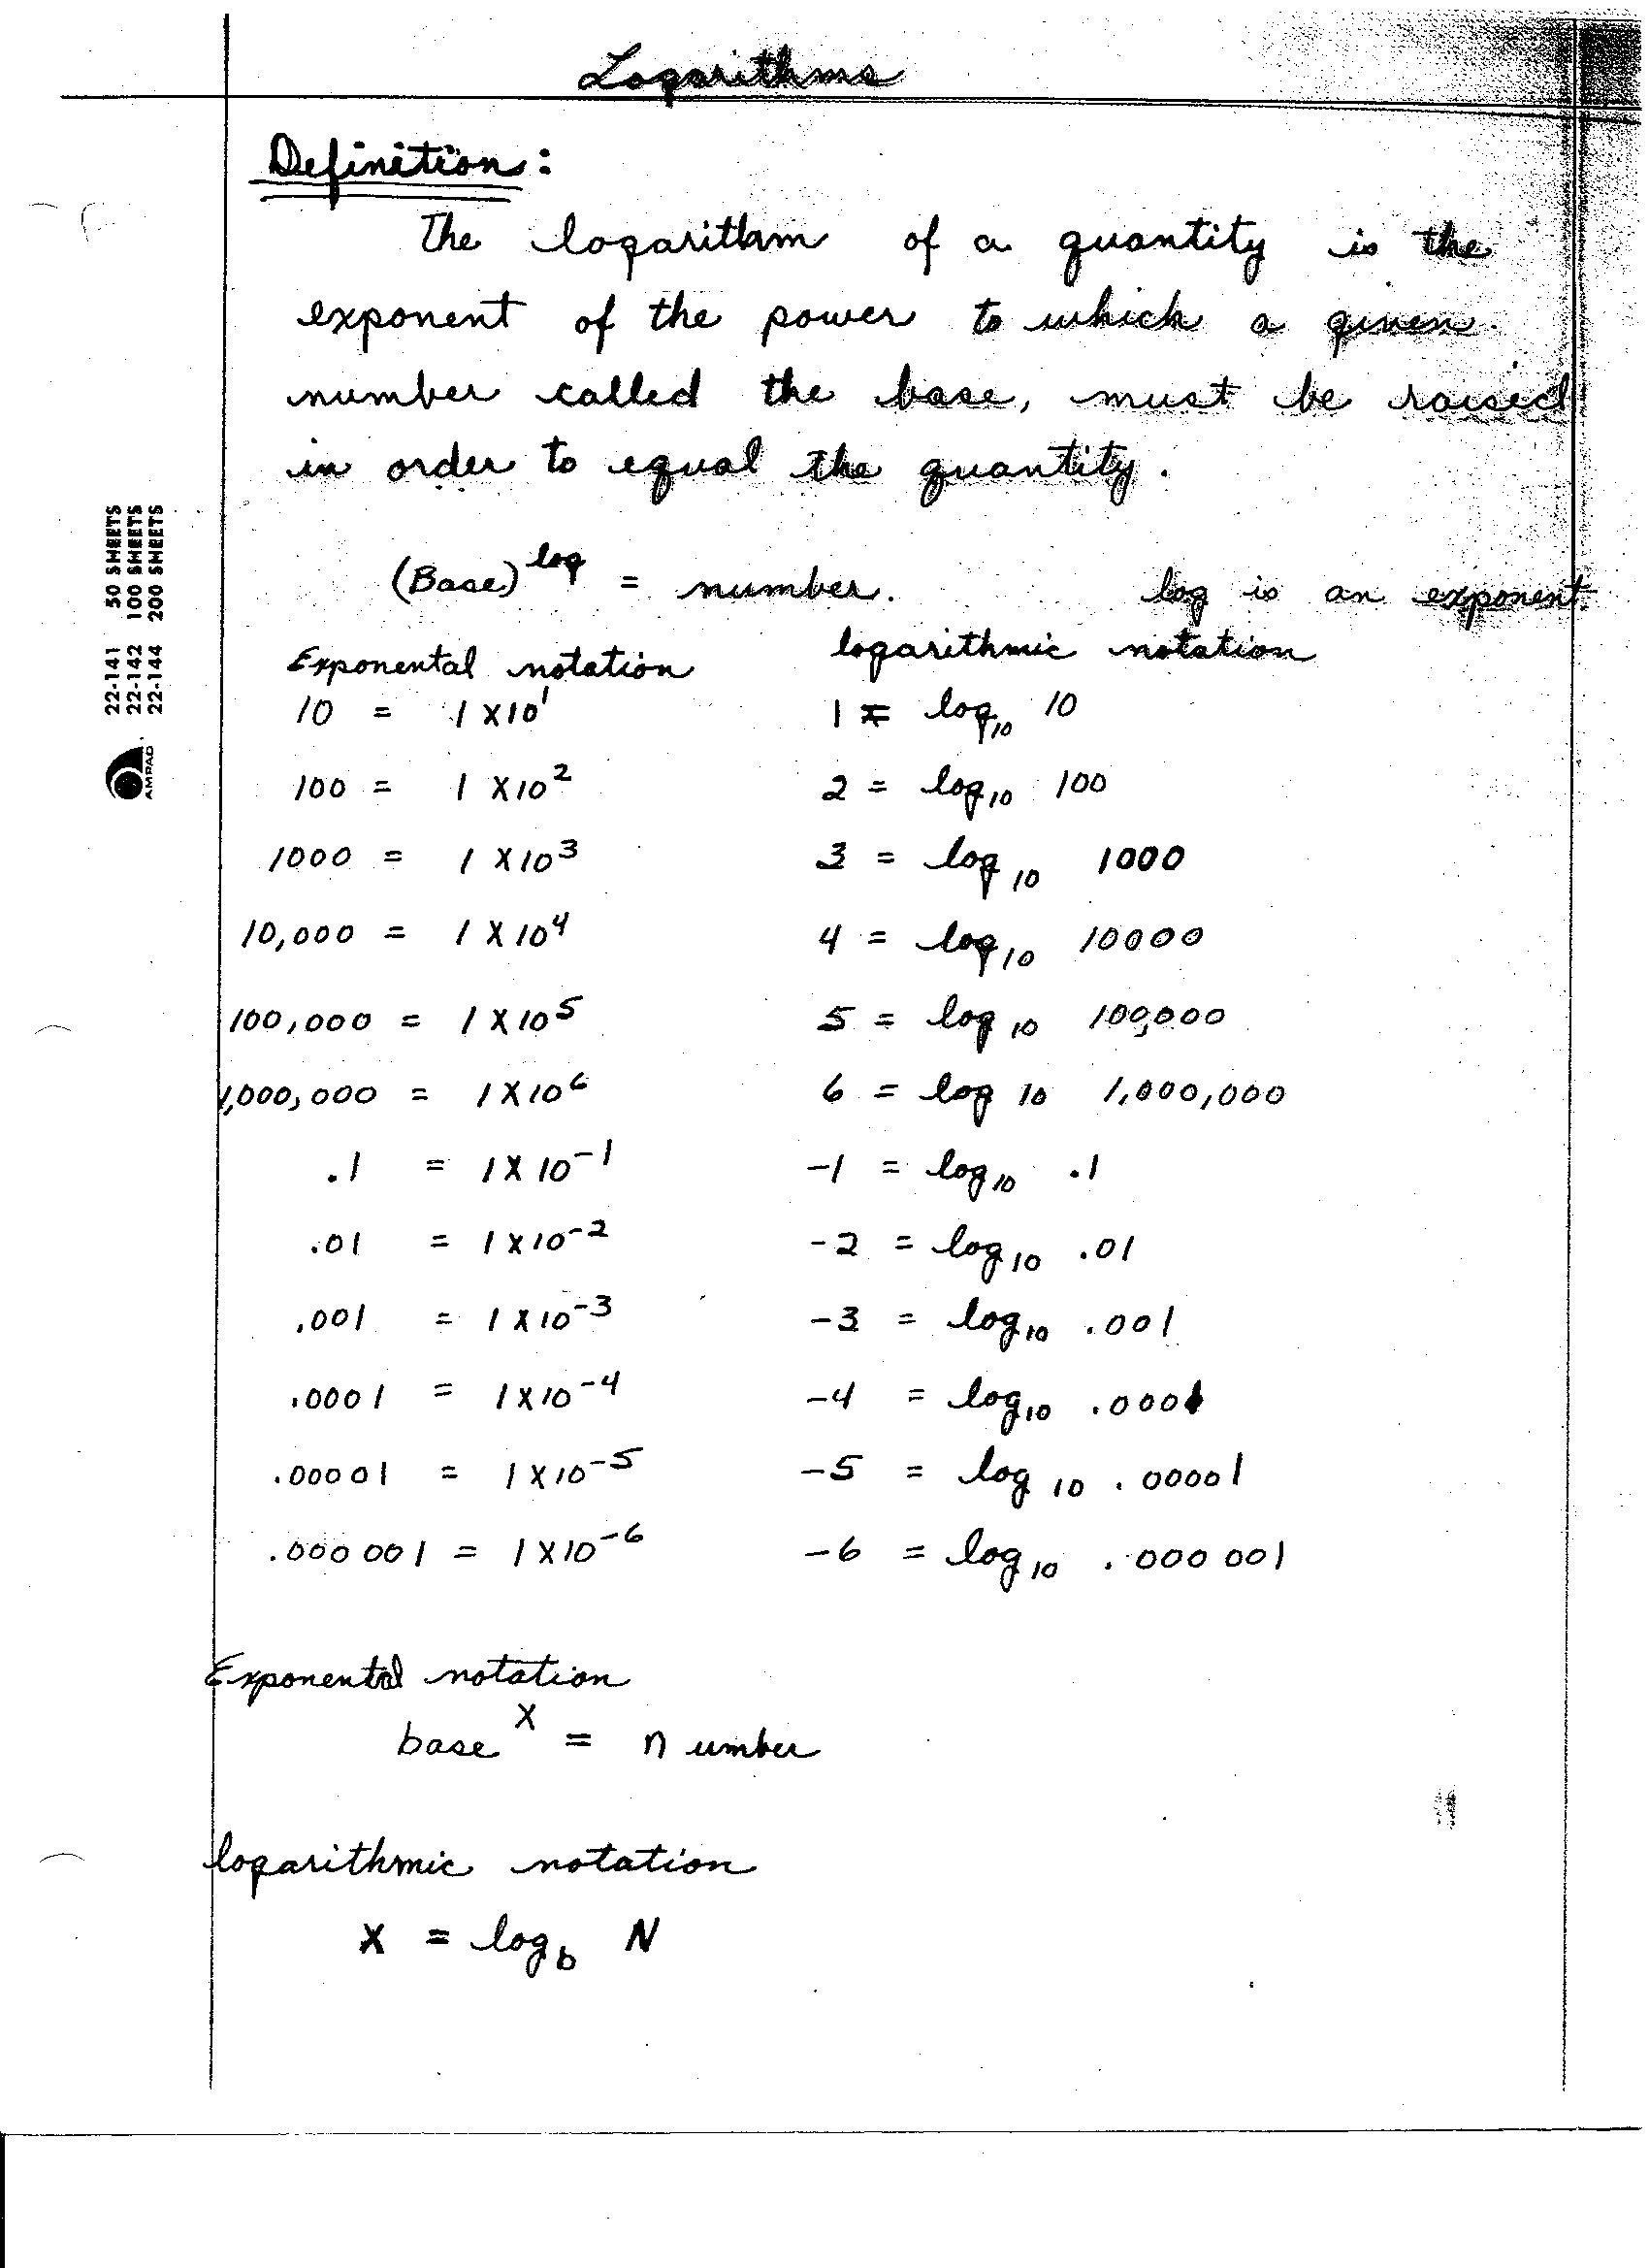 Logarithms
Definition:
The logarithm of a quantity is the
exponent of the power to which a given
number called the base, must be raised
in order to equal the quantity.
(Base)^log = number. log is an exponent
Exponental notation logarithmic notation
10 = 1 X 10^1 1 = log₁₀ 10
100 = 1 X 10^2 2 = log₁₀ 100
1000 = 1 X 10^3 3 = log₁₀ 1000
10,000 = 1 X 10^4 4 = log₁₀ 10000
100,000 = 1 X 10^5 5 = log₁₀ 100,000
1,000,000 = 1 X 10^6 6 = log 10 1,000,000
.1 = 1 X 10^-1 -1 = log₁₀ .1
.01 = 1 X 10^-2 -2 = log₁₀ .01
.001 = 1 X 10^-3 -3 = log₁₀ .001
.0001 = 1 X 10^-4 -4 = log₁₀ .0001
.00001 = 1 X 10^-5 -5 = log₁₀ .00001
.000 001 = 1 X 10^-6 -6 = log₁₀ .000 001
Exponental notation
base^X = number
logarithmic notation
X = log_b N
22-141 50 SHEETS
22-142 100 SHEETS
22-144 200 SHEETS
AMPAD